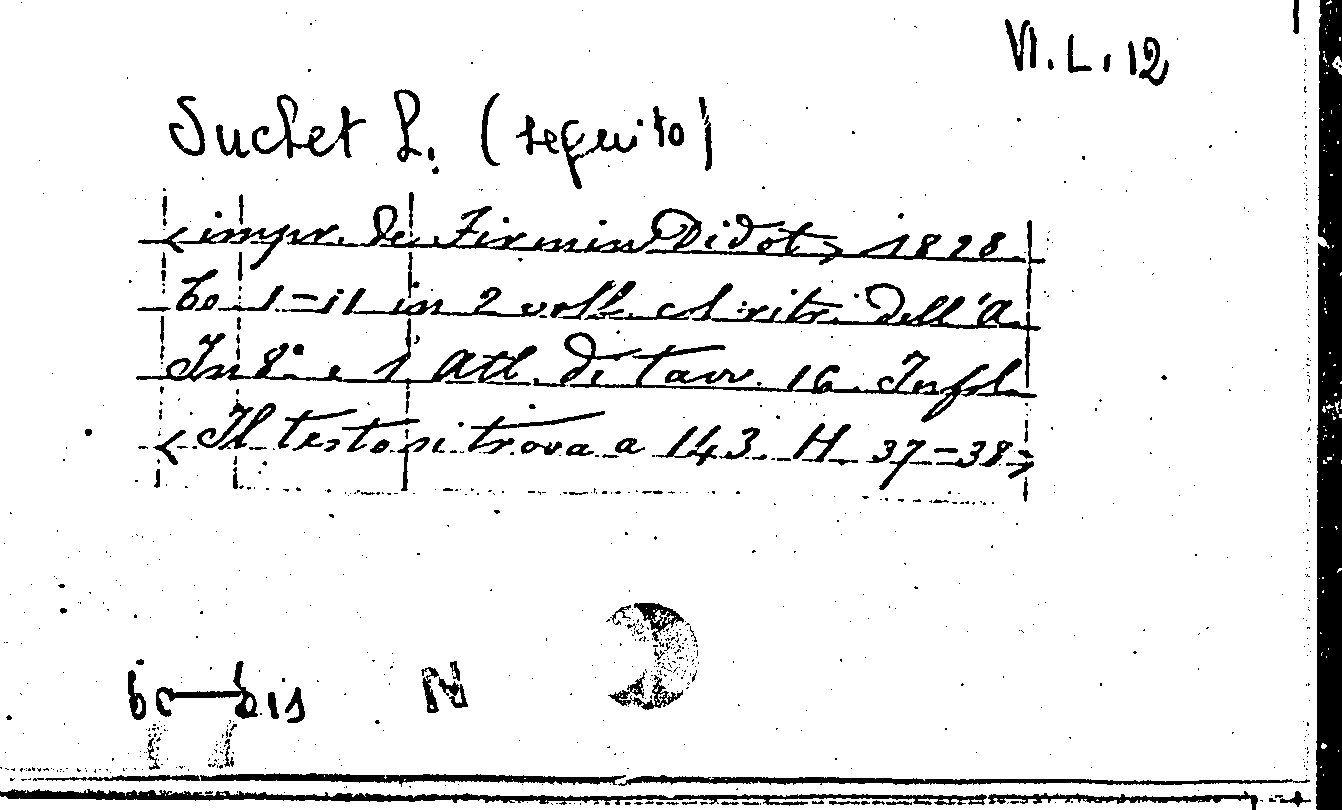 VI. L. 12
Suchet L. (seguito)
<impr. de Firmin Didot>, 1828.
to 1-11 in 2 voll. col ritr. dell'A.
In 8° e 1 Atl. di tavv. 16. In fol.
<Il testo si trova a 143. H. 37-38>
bis
N